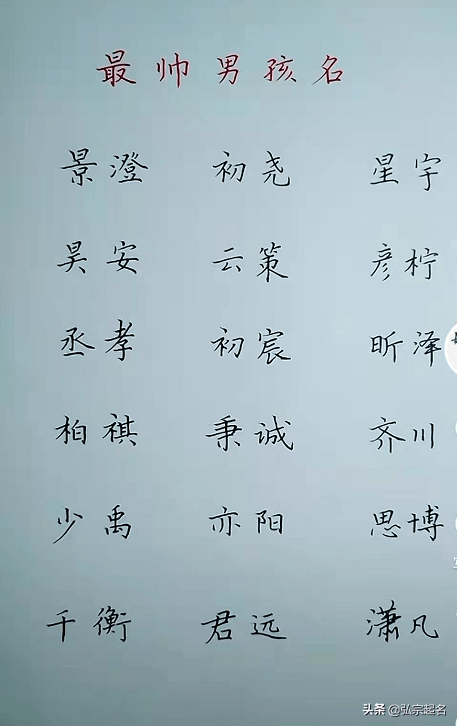 最帅男孩名
景澄 初尧 星宇
昊安 云策 彦柠
丞孝 初宸 昕泽
柏祺 秉诚 齐川
少禹 亦阳 思博
千衡 君远 潇凡
头条 @弘宗起名